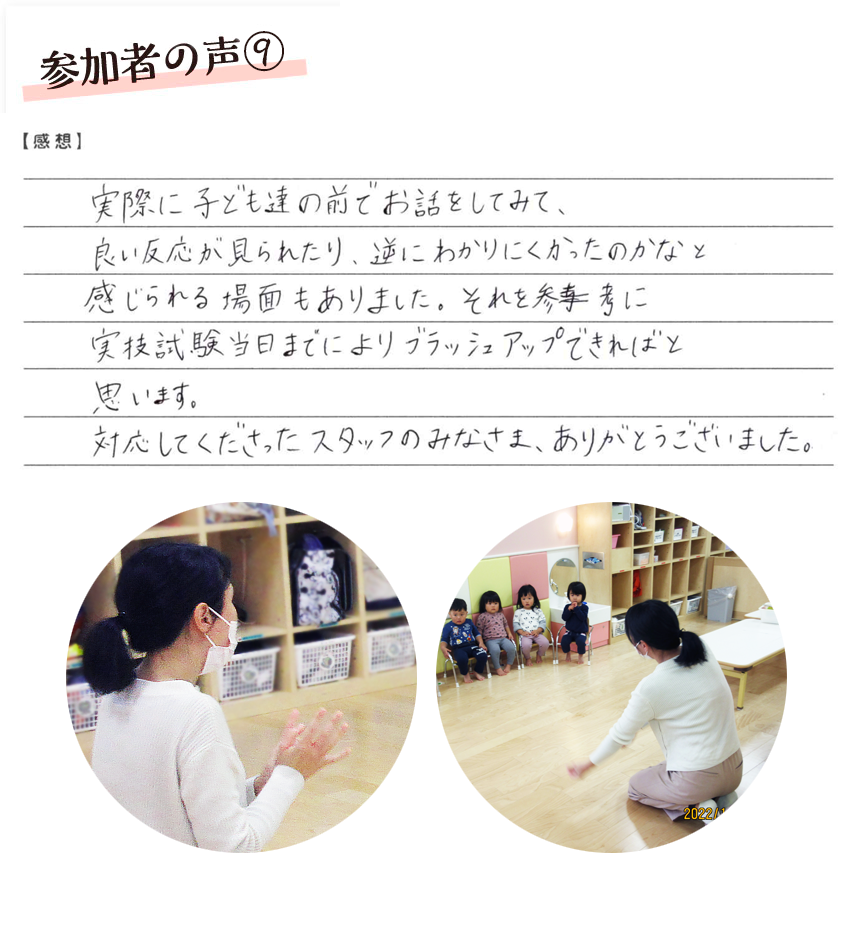 参加者の声⑨
【感想】
実際に子ども達の前でお話をしてみて、
良い反応が見られたり、逆にわかりにくかったのかなと
感じられる場面もありました。それを参考に
実技試験当日までによりブラッシュアップできればと
思います。
対応してくださったスタッフのみなさま、ありがとうございました。
2022/